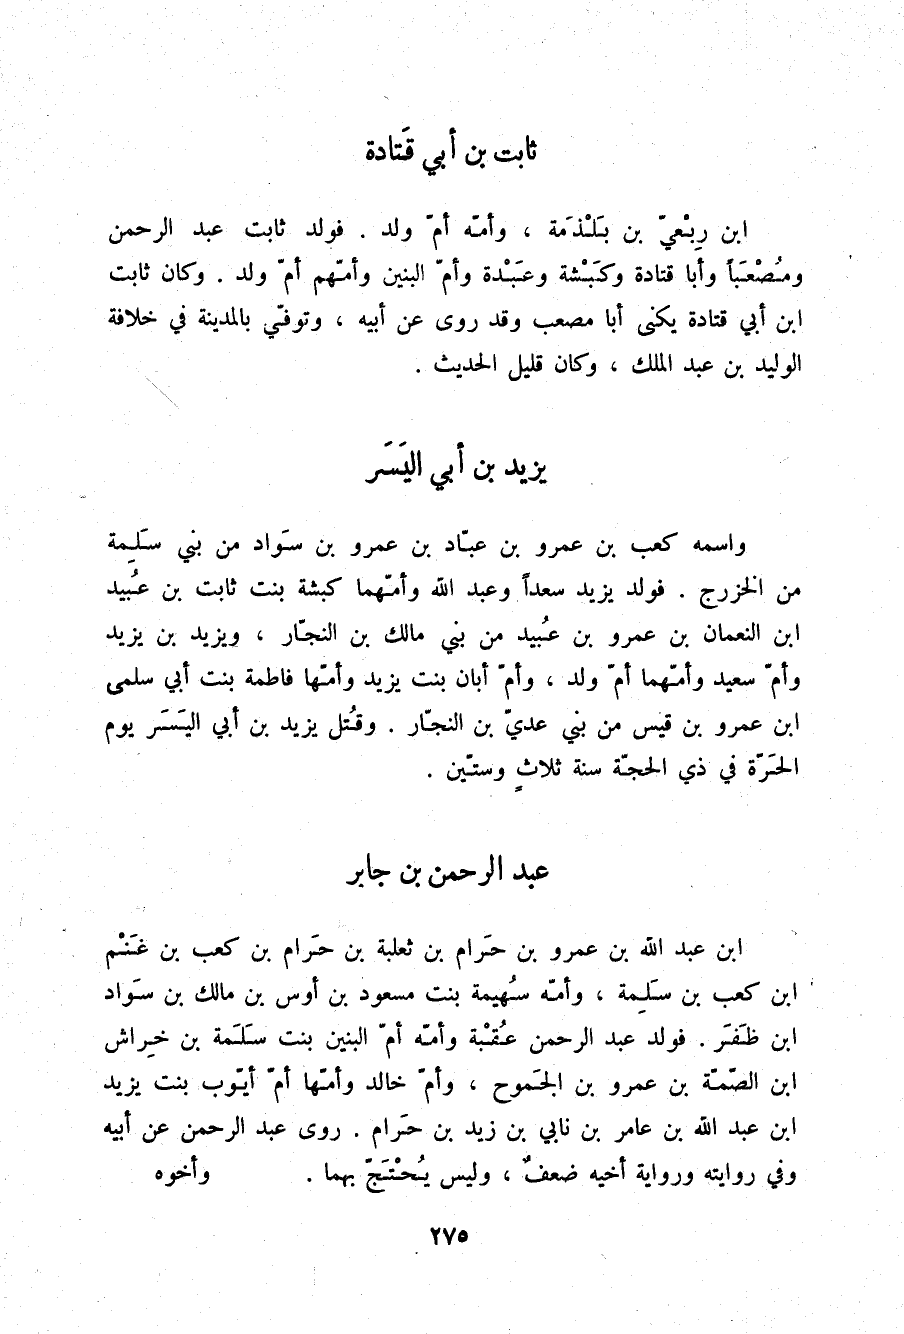 ثابت بن أبي قَتادة
ابن رِبْعيّ بن بَلْذَمة ، وأمّه أمّ ولد . فولد ثابت عبد الرحمن
ومُصْعَباً وأبا قتادة وكَبْشة وعَبْدة وأمّ البنين وأمّهم أمّ ولد . وكان ثابت
ابن أبي قتادة يكنى أبا مصعب وقد روى عن أبيه ، وتوفّي بالمدينة في خلافة
الوليد بن عبد الملك ، وكان قليل الحديث .
يزيد بن أبي اليَسَر
واسمه كعب بن عمرو بن عبّاد بن عمرو بن سَواد من بني سَلِمة
من الخزرج . فولد يزيد سعداً وعبد الله وأمّهما كبشة بنت ثابت بن عُبيد
ابن النعمان بن عمرو بن عُبيد من بني مالك بن النجّار ، ويزيد بن يزيد
وأمّ سعيد وأمّهما أمّ ولد ، وأمّ أبان بنت يزيد وأمّها فاطمة بنت أبي سلمى
ابن عمرو بن قيس من بني عديّ بن النجّار . وقُتل يزيد بن أبي اليَسَر يوم
الحَرّة في ذي الحجّة سنة ثلاثٍ وستّين .
عبد الرحمن بن جابر
ابن عبد الله بن عمرو بن حَرام بن ثعلبة بن حَرام بن كعب بن غَنْم
ابن كعب بن سَلِمة ، وأمّه سُهيمة بنت مسعود بن أوس بن مالك بن سَواد
ابن ظَفَر . فولد عبد الرحمن عُقْبة وأمّه أمّ البنين بنت سَلَمة بن خِراش
ابن الصّمّة بن عمرو بن الجَموح ، وأمّ خالد وأمّها أمّ أيّوب بنت يزيد
ابن عبد الله بن عامر بن نابي بن زيد بن حَرام . روى عبد الرحمن عن أبيه
وفي روايته ورواية أخيه ضعفٌ ، وليس يُحْتَجّ بهما . وأخوه
٢٧٥